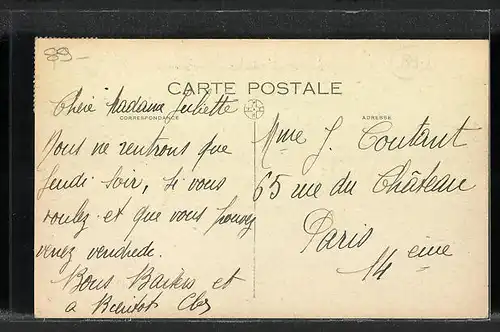 89-
CARTE POSTALE
Chère Madame Juliette
CORRESPONDANCE
Nous ne rentrons que
Jeudi soir, si vous
voulez et que vous pouvez
venez vendredi.
Bons Baisers et
a Bientot
ADRESSE
Mme J. Coutant
65 rue du Château
Paris
14 ème